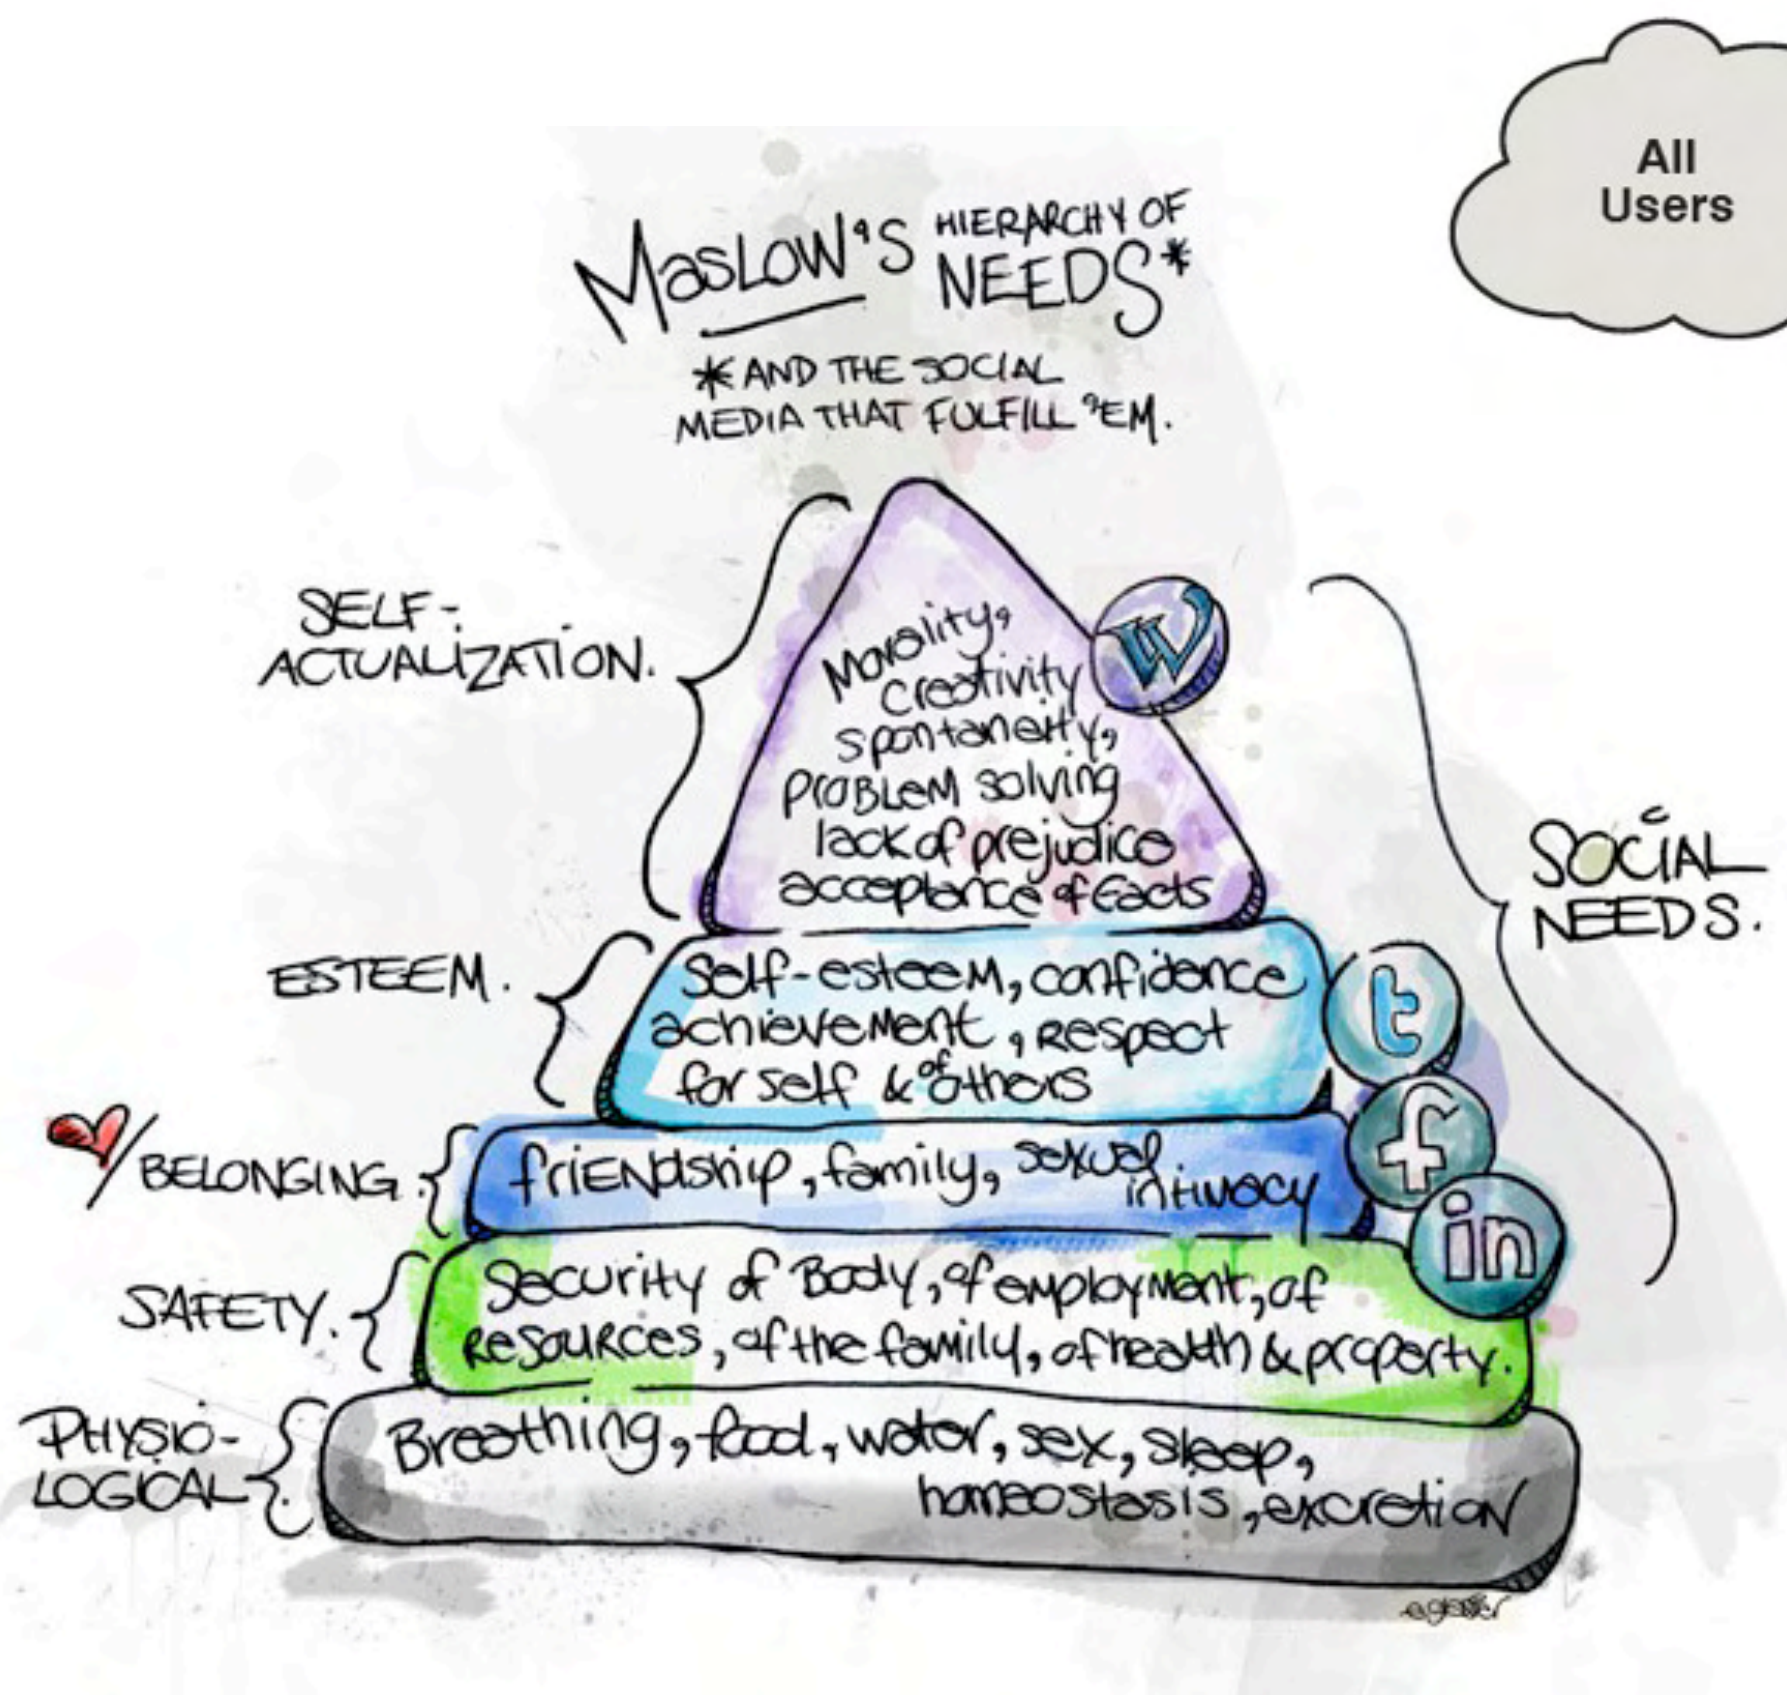 All
Users
MaSLOW'S HIERARCHY OF
NEEDS*
*AND THE SOCIAL
MEDIA THAT FULFILL 'EM.
SELF-
ACTUALIZATION.
Morality,
creativity
spontaneity,
PROBLEM solving
lack of prejudice
acceptance of facts
W
SOCIAL
NEEDS.
ESTEEM.
Self-esteem, confidence
achievement, respect
for self & of others
t
f
in
/BELONGING.
friENDship, family, sexual
intimacy
SAFETY.
Security of Body, of employment, of
resources, of the family, of health & property.
PHYSIO-
LOGICAL.
Breathing, food, water, sex, sleep,
homeostasis, excretion